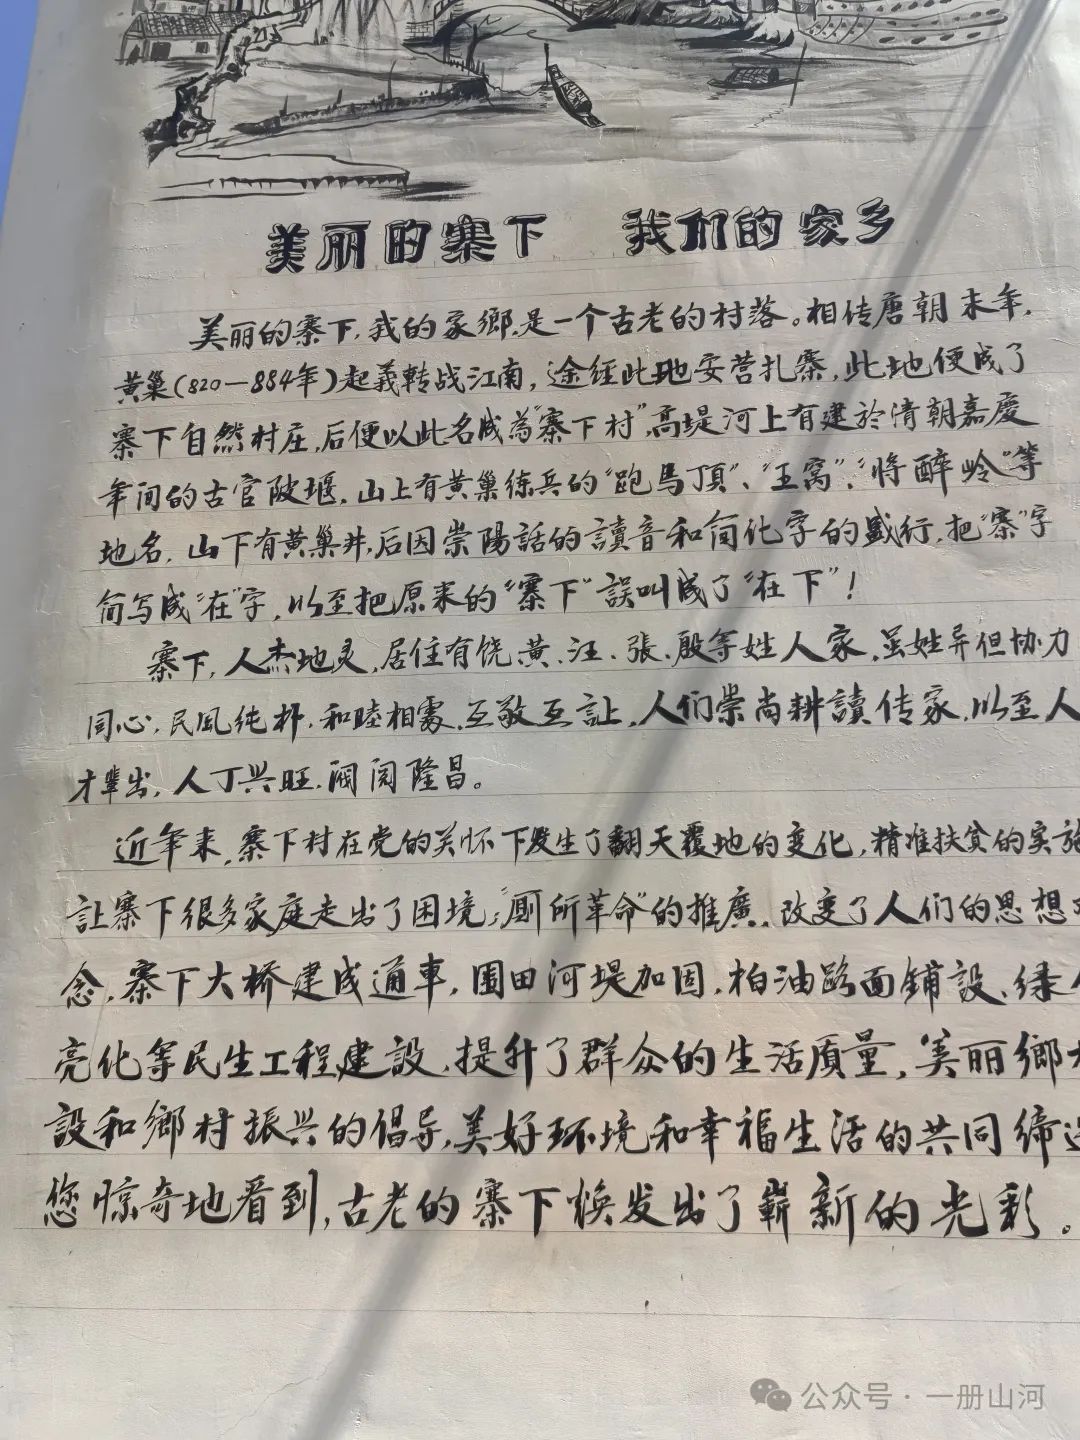 美丽的寨下　我们的家乡
美丽的寨下,我的家鄉,是一个古老的村落。相传唐朝末年,
黄巢(820—884年)起義転战江南,途经此地安营扎寨,此地便成了
寨下自然村庄,后便以此名成為"寨下村",高堤河上有建於清朝嘉慶
年间的古官陂堰,山上有黄巢练兵的"跑馬頂"、"王窝"、"将醉岭"等
地名,山下有黄巢井,后因崇陽話的讀音和简化字的盛行,把"寨"字
简写成"在"字,以至把原来的"寨下"誤叫成了"在下"!
寨下,人杰地灵,居住有饶、黄、汪、張、殷等姓人家,虽姓异但协力
同心,民風纯朴,和睦相處,互敬互讓,人们崇尚耕讀传家,以至人
才辈出,人丁兴旺,阀阅隆昌。
近年来,寨下村在党的关怀下发生了翻天覆地的变化,精准扶贫的实施
让寨下很多家庭走出了困境;"厕所革命"的推廣,改变了人们的思想
念,寨下大桥建成通車,圍田河堤加固,柏油路面鋪設、绿
亮化等民生工程建設,提升了群众的生活质量,美丽鄉
設和鄉村振兴的倡导,美好环境和幸福生活的共同缔造
您惊奇地看到,古老的寨下焕发出了嶄新的光彩。
公众号·一册山河